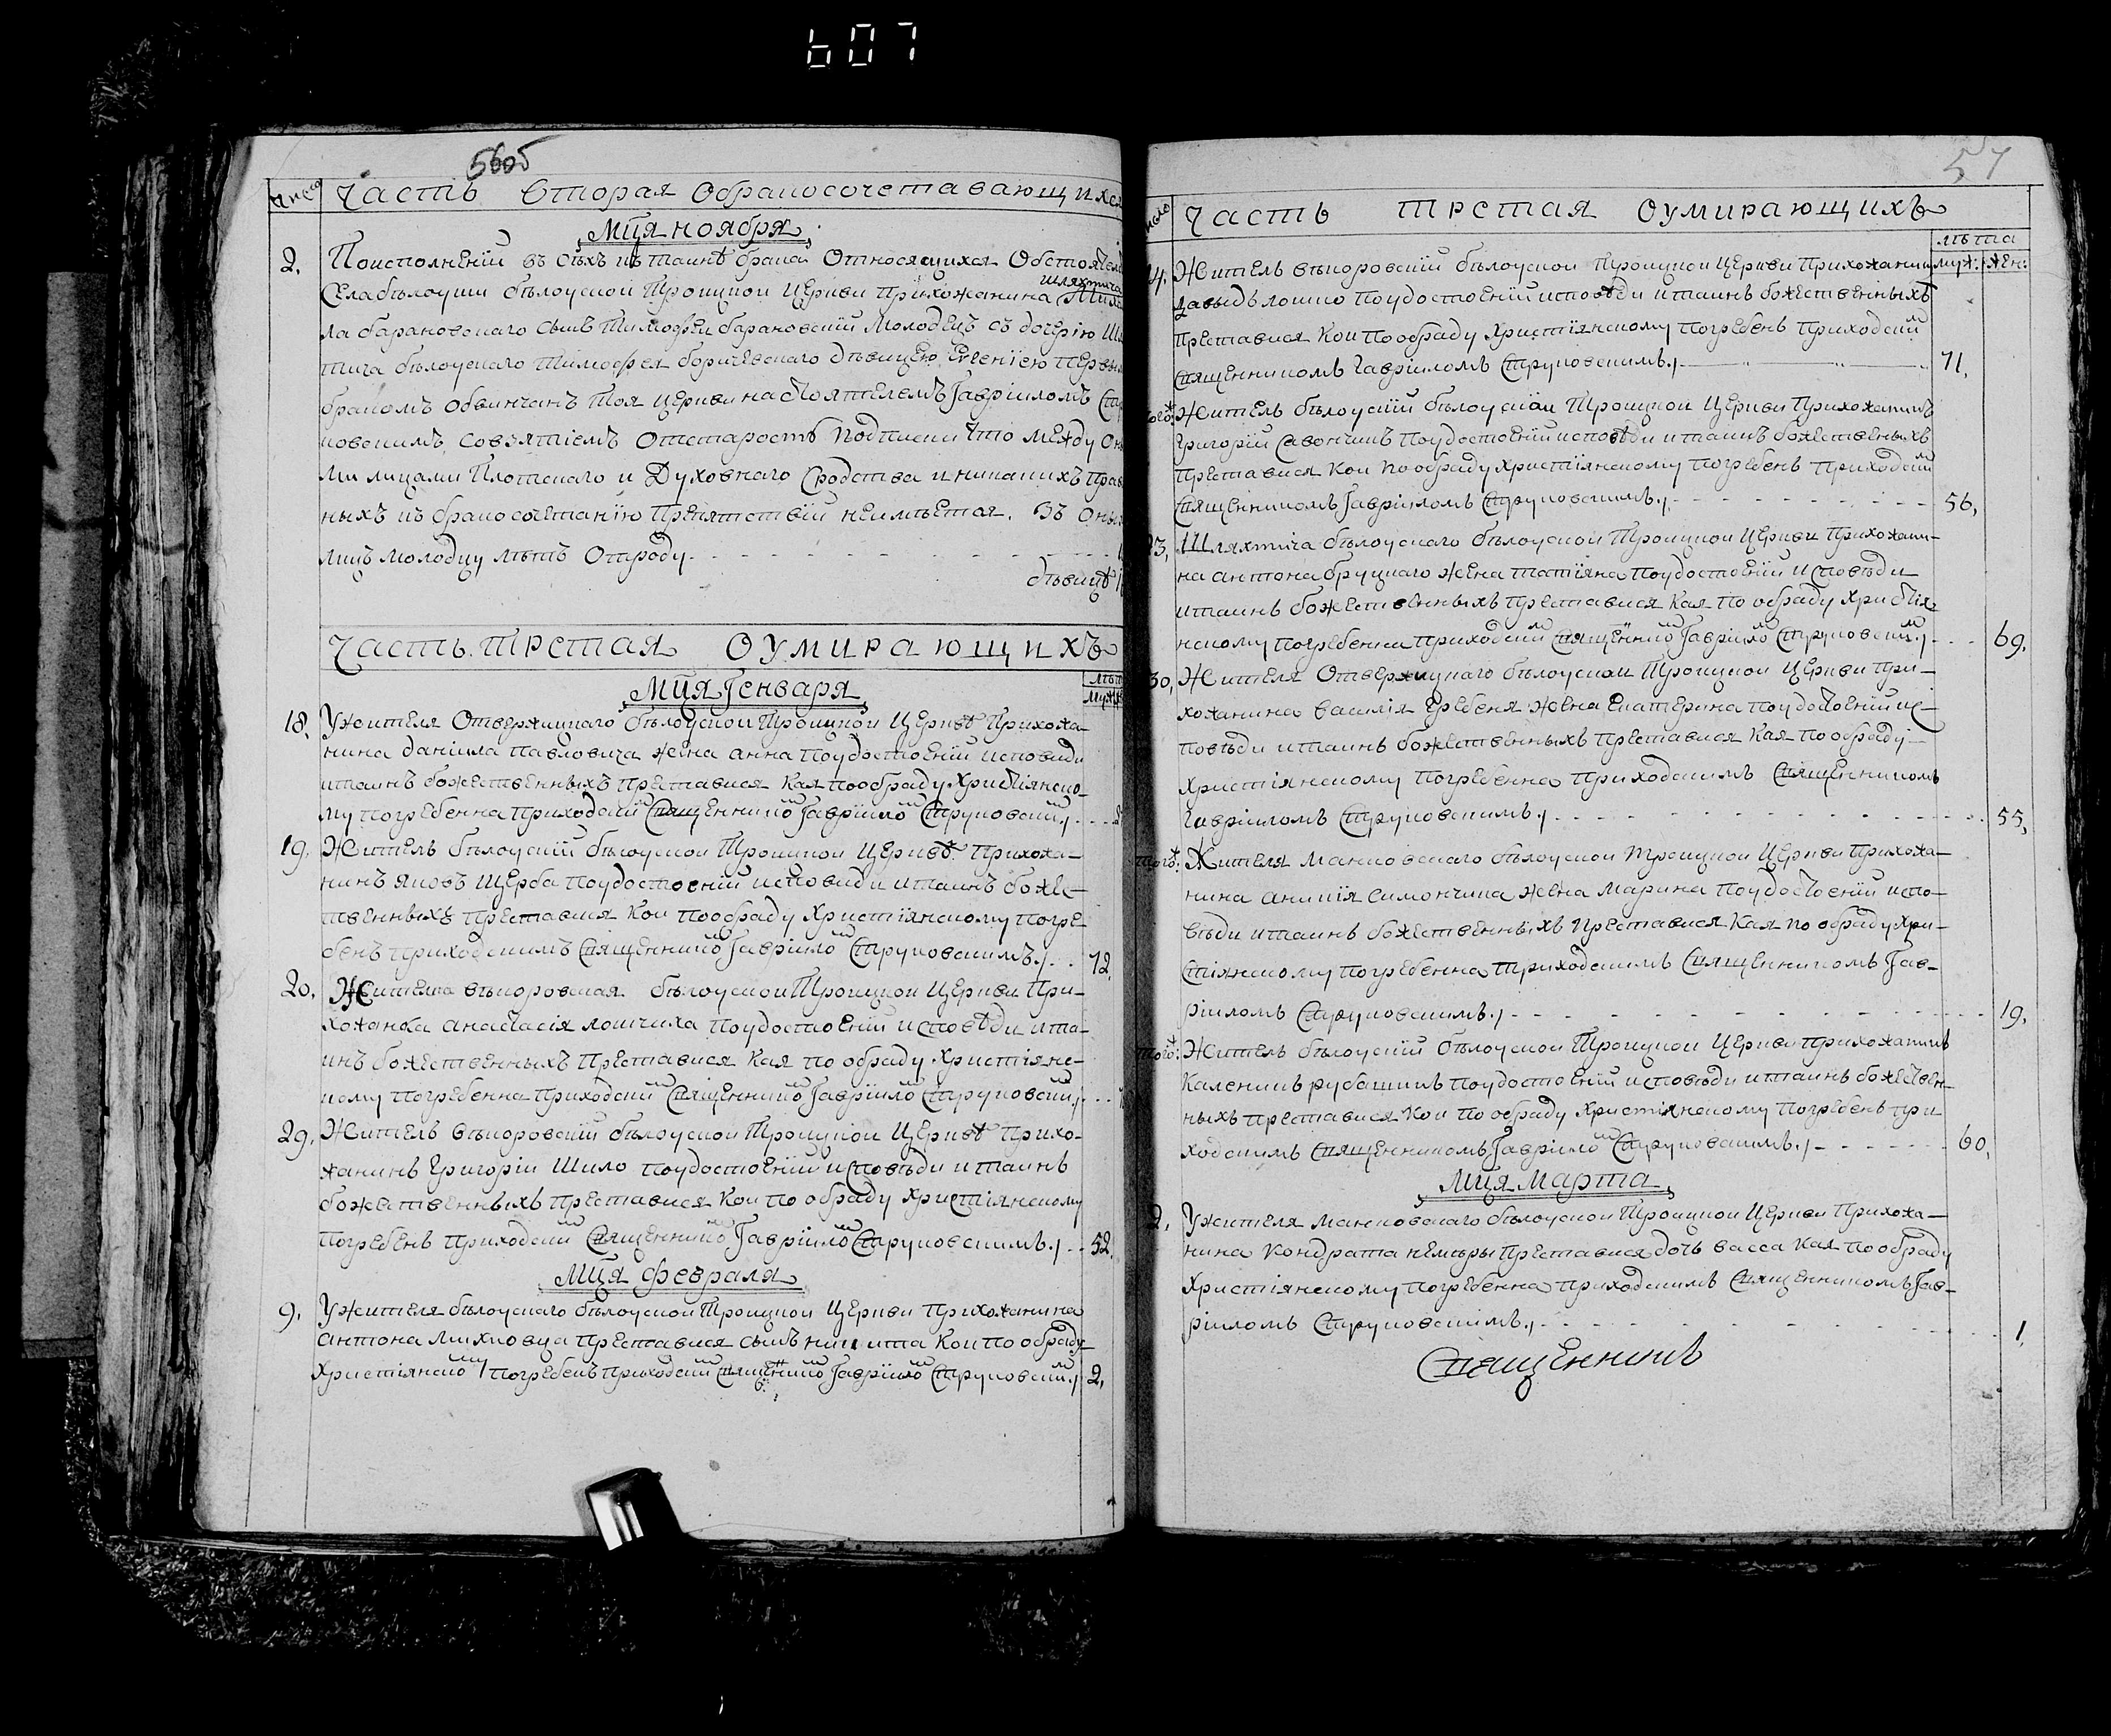 607
56об
Число Часть вторая обракосочетавающихся
Мця ноября
2. Поисполнении въ сѣхъ къ таинѣ брака относящихся обстоятел
Села бѣлоуши бѣлоуской Троицкой Церкви прихожанина шляхтича Миха
ла барановского сынъ Тимофей барановский молодецъ съ дочерiю Шл
тича бѣлоуского Тимофея боричевского дѣвицею Евгенiею первы
бракомъ обвинчанъ тоя церкви настоятелемъ Гаврiиломъ Стру
ковскимъ совзятiемъ отстаростъ подписки что между он
ми лицами Плотского и Духовнаго сродства иникакихъ прав
ныхъ къ бракосочетанiю препятствiй неимѣется. Въ оны
лицъ молодцу лѣтъ отроду
дѣвицѣ
Часть третая оумирающихъ
Мця Генваря
лѣт
муж
18. Ужителя отвержицкаго бѣлоуской Троицкой Церквѣ Прихожа-
нина данiила павловича жена анна поудостоенiи исповиди
итаинъ божественныхъ преставися кая пообраду Христiянско-
му погребенна приходским Священником Гаврiилом Струковским
19. Житель бѣлоускiй бѣлоуской Троицкой Церквѣ Прихожа-
нинъ яковъ Щерба поудостоенiи исповиди итаинъ боже-
твенныхъ преставися кой пообраду христiянскому погре-
бенъ приходскимъ Священником Гаврiилом Струковскимъ 72
20. Жителка вѣкоровская бѣлоуской Троицкой Церкви При-
хожанка анастасiя лошчиха поудостоенiи исповѣди ита-
инъ божественныхъ преставися кая по обраду христiянс-
кому погребенна приходским Священником Гаврiилом Струковским
29. Житель вѣкоровскiй бѣлоуской Троицкой Церквѣ прихо-
жанинъ Григорiй Шило поудостоенiи исповѣди итаинъ
божественныхъ преставися кой по обраду христiянскому
погребенъ приходским Священником Гаврiилом Струковскимъ 52.
Мця февраля
9. Ужителя бѣлоуского бѣлоуской Троицкой Церкви прихожанина
антона преставися сынъ никита кой по обраду
Христiянскому погребенъ приходским Священником Гаврiилом Струковским 2,
57
число Часть третая оумирающихъ
лѣта
муж: жен:
4. Житель вѣкоровскiй бѣлоуской Троицкой Церкви Прихожанин
давыдъ лошко поудостоенiи исповѣди итаинъ божественныхъ
преставися кой пообраду христiянскому погребенъ приходским
Священникомъ Гаврiиломъ Струковскимъ 71,
того ж: Житель бѣлоускiй бѣлоускiой Троицкой Церкви Прихожанинъ
Григорiй Савончикъ поудостоенiи исповѣди итаинъ божественныхъ
преставися кой пообраду христiянскому погребенъ приходским
Священникомъ Гаврiиломъ Струковскимъ 56,
23, Шляхтича бѣлоуского бѣлоуской Троицкой Церкви Прихожани-
на антона бруцкаго жена татiяна поудостоенiи исповѣди
итаинъ божественныхъ преставися кая по обраду христiя-
нскому погребенна приходским Священником Гаврiилом Струковским 69,
30, Жителя отвержицкаго бѣлоуской Троицкой Церкви при-
хожанина василiя Гребеня жена Екатерина поудостоенiи ис-
повѣди итаинъ божественныхъ преставися кая по обраду
христiянскому погребенна приходскимъ Священникомъ
Гаврiиломъ Струковскимъ 55,
того ж: Жителя манковского бѣлоуской троицкой Церкви Прихожа-
нина аникiя Симончика жена Марина поудостоенiи испо-
вѣди итаинъ божественныхъ преставися кая по обраду хри-
стiянскому погребенна приходскимъ Священникомъ Гав-
рiиломъ Струковскимъ 19,
того ж: Житель бѣлоускiй бѣлоуской Троицкой Церкви прихожанинъ
Каленикъ рубашикъ поудостоенiи исповѣди итаинъ божествен-
ныхъ преставися кой по обраду христiянскому погребенъ при
ходскимъ Священникомъ Гаврiилом Струковскимъ 60,
Мця Марта
2, Ужителя манковского бѣлоуской Троицкой Церкви Прихожа-
нина Кондрата немѣры преставися дочь васса кая пообраду
Христiянскому погребенна приходскимъ Священникомъ Гав-
рiиломъ Струковскимъ 1
Священникъ